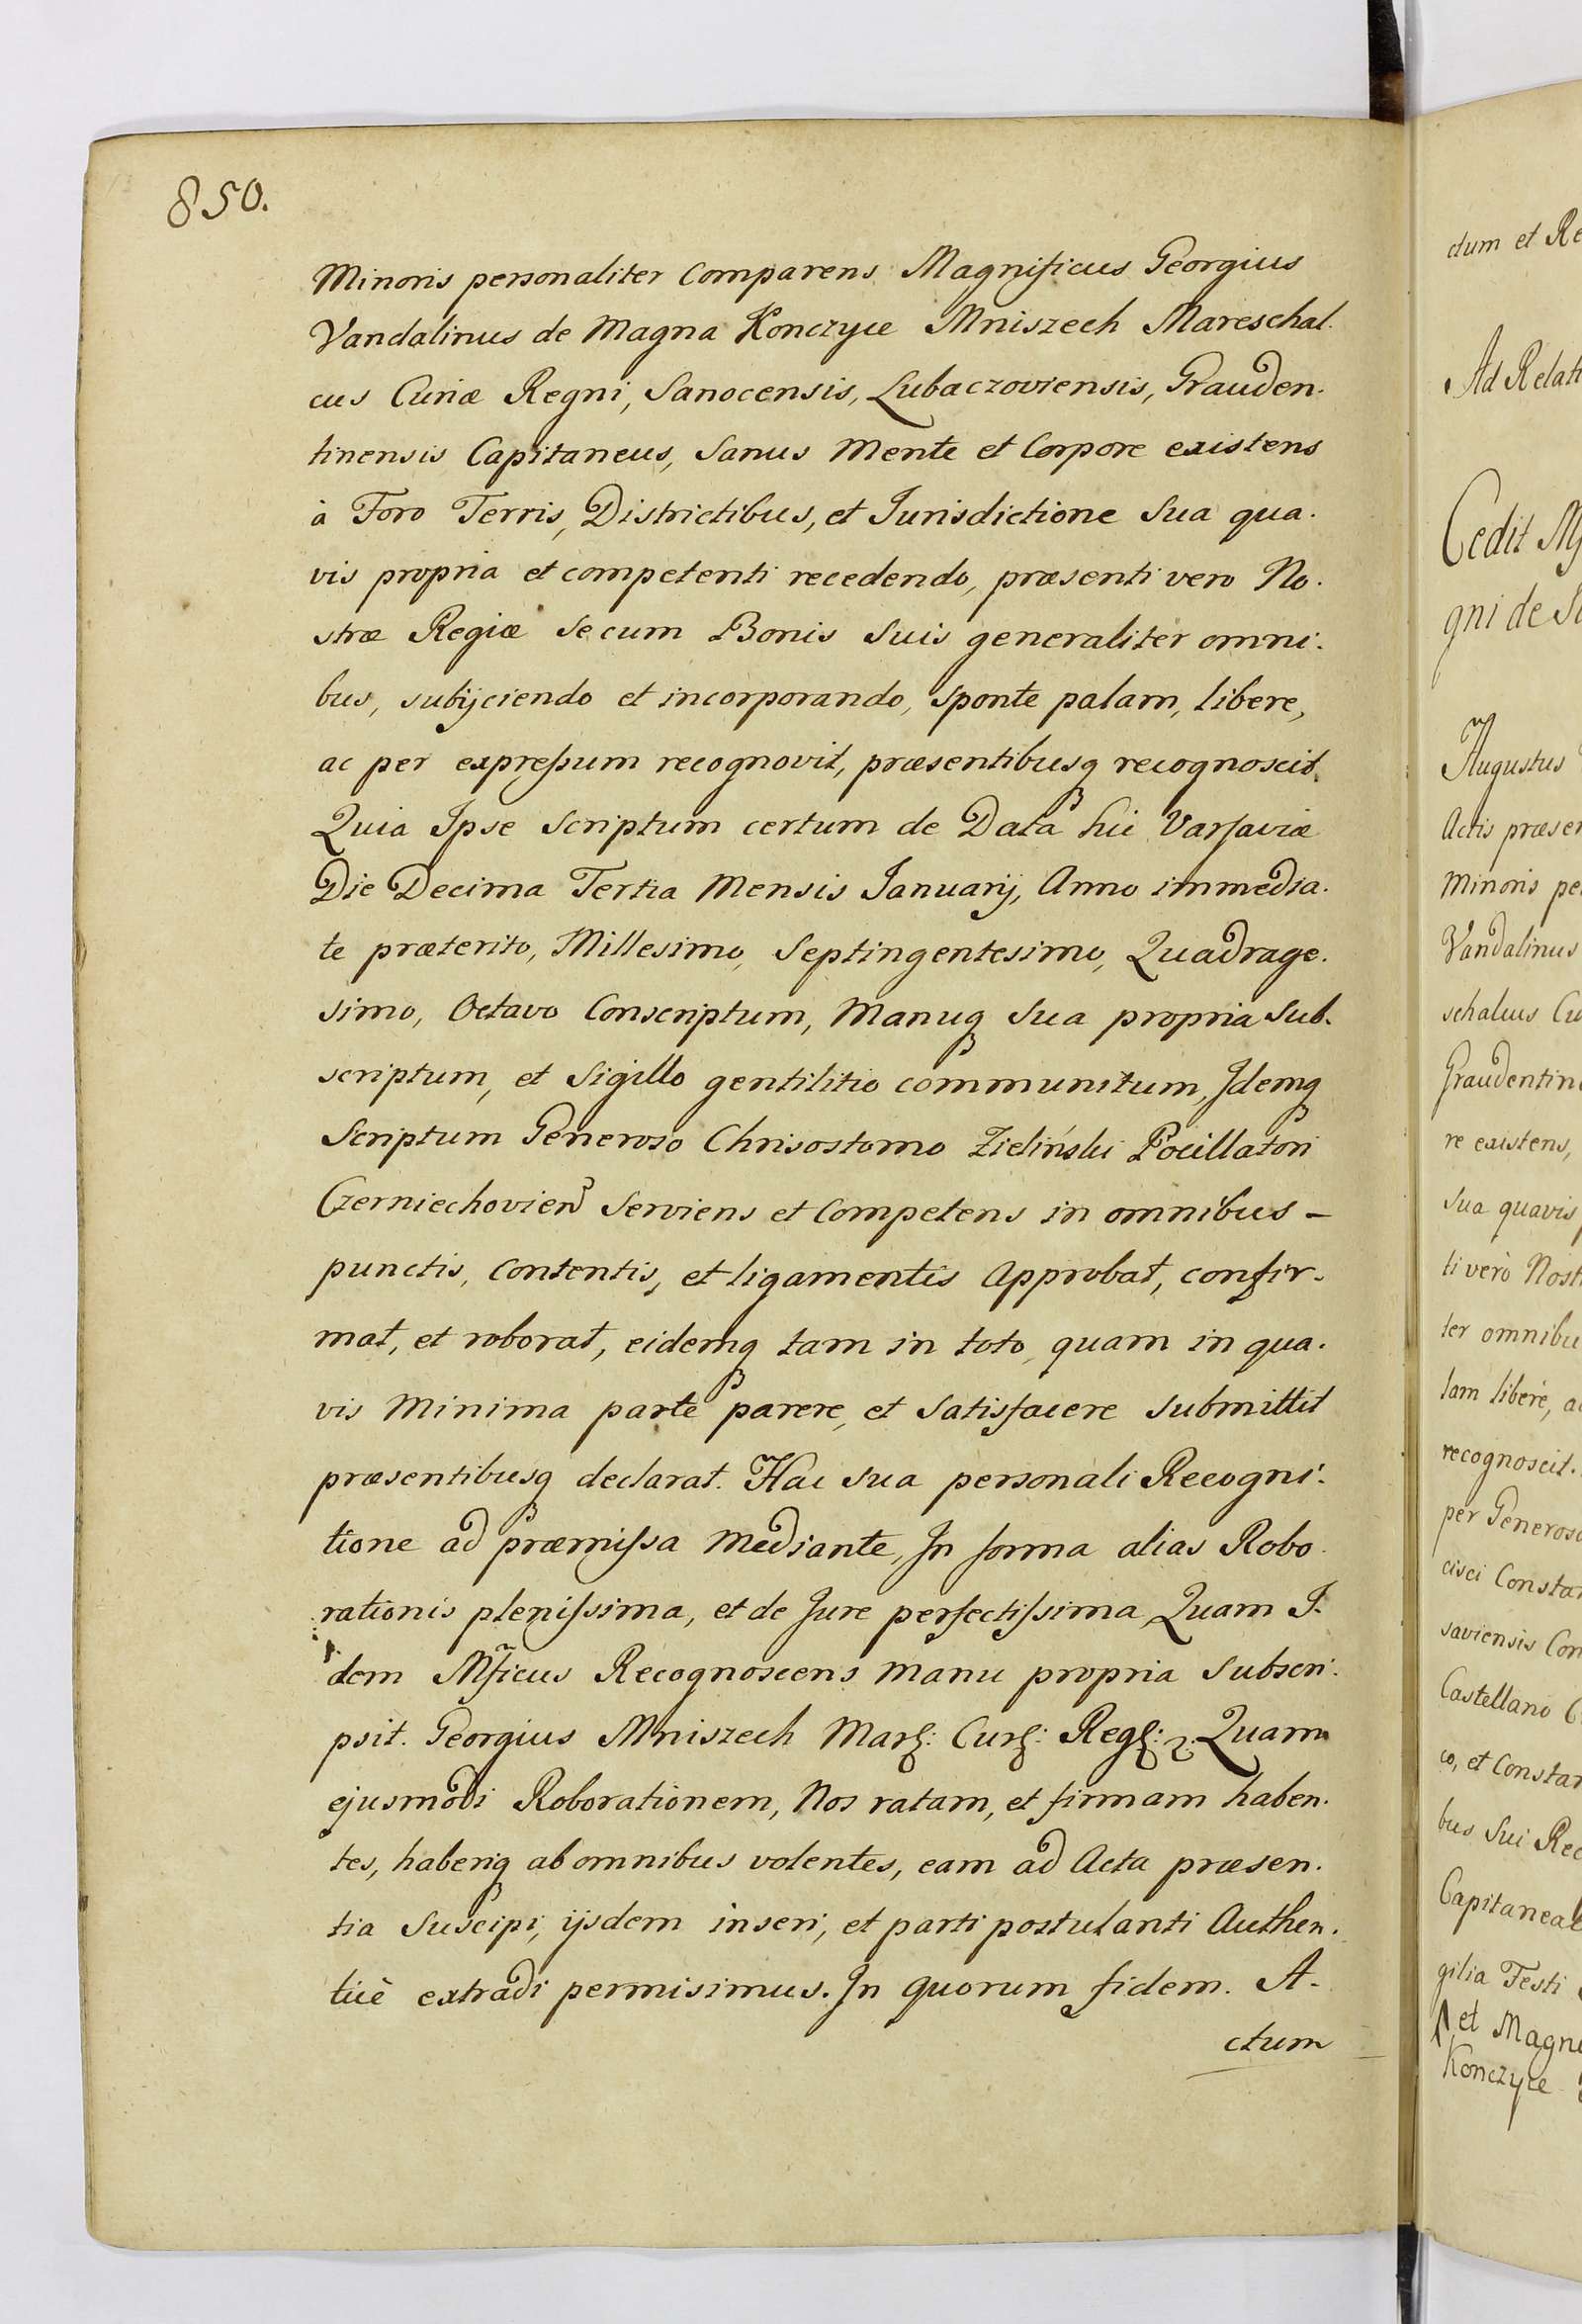 850.
Minoris personaliter comparens Magnificus Georgius
Vandalinus de Magna Konczyce Mniszech Mareschal.
cus Curiæ Regni, Sanocensis, Lubaczoviensis, Grauden.
tinensis Capitaneus, Sanus Mente et Corpore existens
à Foro Terris, Districtibus, et Jurisdictione Sua qua.
vis propria et competenti recedendo, præsenti vero No.
stræ Regiæ se cum Bonis Suis generaliter omni.
bus, subijciendo et incorporando, sponte palam, libere,
ac per expreſsum recognovit, præsentibusq recognoscit.
Quia Ipse Scriptum certum de Data hic Varſaviæ
Die Decima Tertia Mensis Januarij, Anno immedia.
te præterito, Millesimo, Septingentesimo, Quadrage.
simo, Octavo Conscriptum, Manuq Sua propria Sub.
scriptum, et Sigillo gentilitio communitum, Idemq
Scriptum Generoso Chrisostomo Zieliński Pocillatori
Czerniechovien Serviens et Competens in omnibus -
punctis, Contentis, et ligamentis Approbat, confir-
mat, et roborat, eidemq tam in toto, quam in qua.
vis Minima parte parere, et Satisfacere Submittit
præsentibusq declarat. Hac sua personali Recogni.
tione ad præmiſsa Mediante, In forma alias Robo.
rationis pleniſsima, et de Jure perfectiſsima, Quam I.
dem Mficus Recognoscens manu propria Subscri.
psit. Georgius Mniszech Mar: Cur: Reg: Quam
ejusmodi Roborationem, Nos ratam, et firmam haben.
tes, haberiq ab omnibus volentes, eam ad Acta præsen.
tia Suscipi, ijsdem inseri, et parti postulanti Authen.
ticè extradi permisimus. In quorum fidem. A-
ctum
ctum et Re
Ad Relati
Cedit
gni de
Augustus
Actis præsen
Minoris pe
Vandalinus
schalcus Cu
Graudentin
re existens,
Sua quavis
ti verò Nost
ter omnibu
lam liberè, a
recognoscit.
per Generoso
cisci Constan
saviensis Con
Castellano C
co, et Constan
bus Sui Rec
Capitaneal
gilia Testi
et Magn
Konczyce